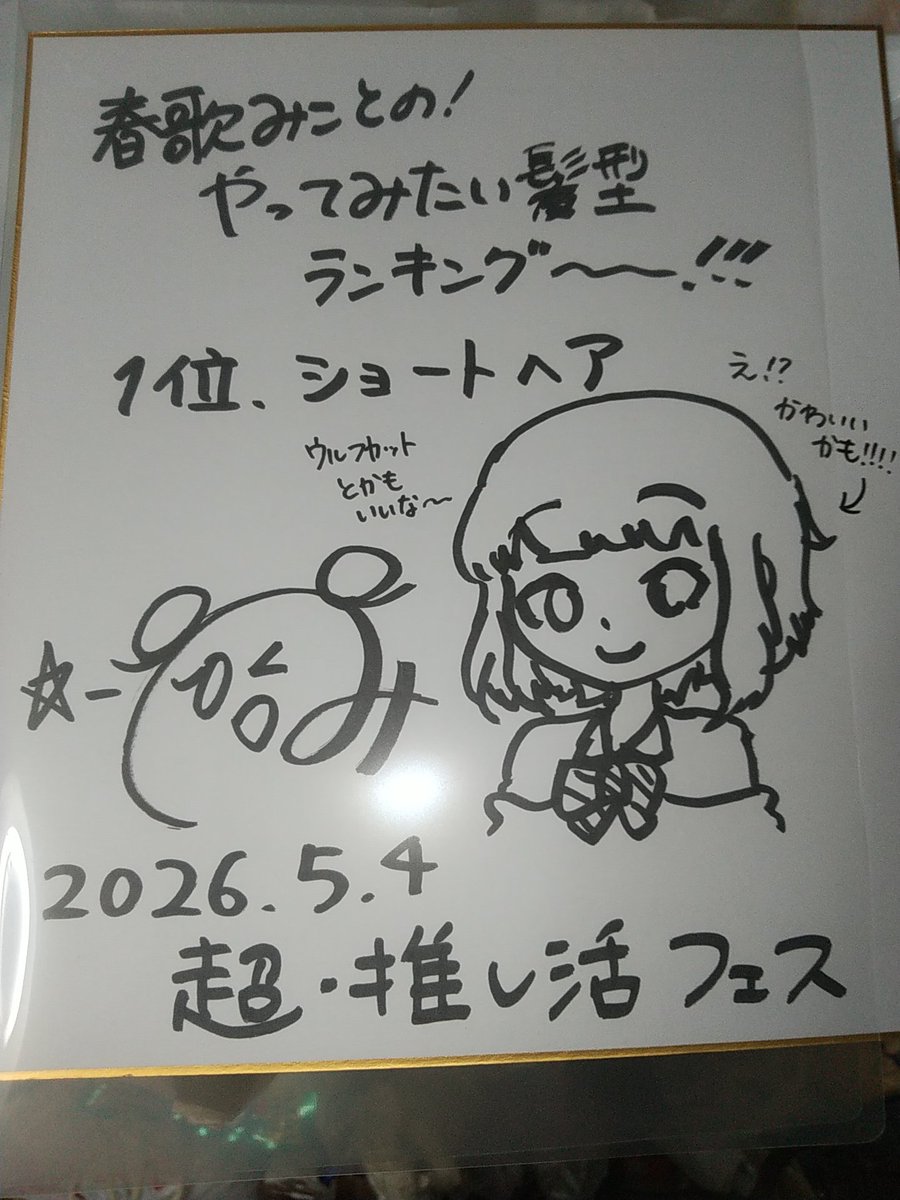 春歌みことの!
やってみたい髪型
ランキング〜〜!!!
1位、ショートヘア
え!?
かわいい
かも!!!!
ウルフカット
とかも
いいな〜
み
2026.5.4
超・推し活フェス